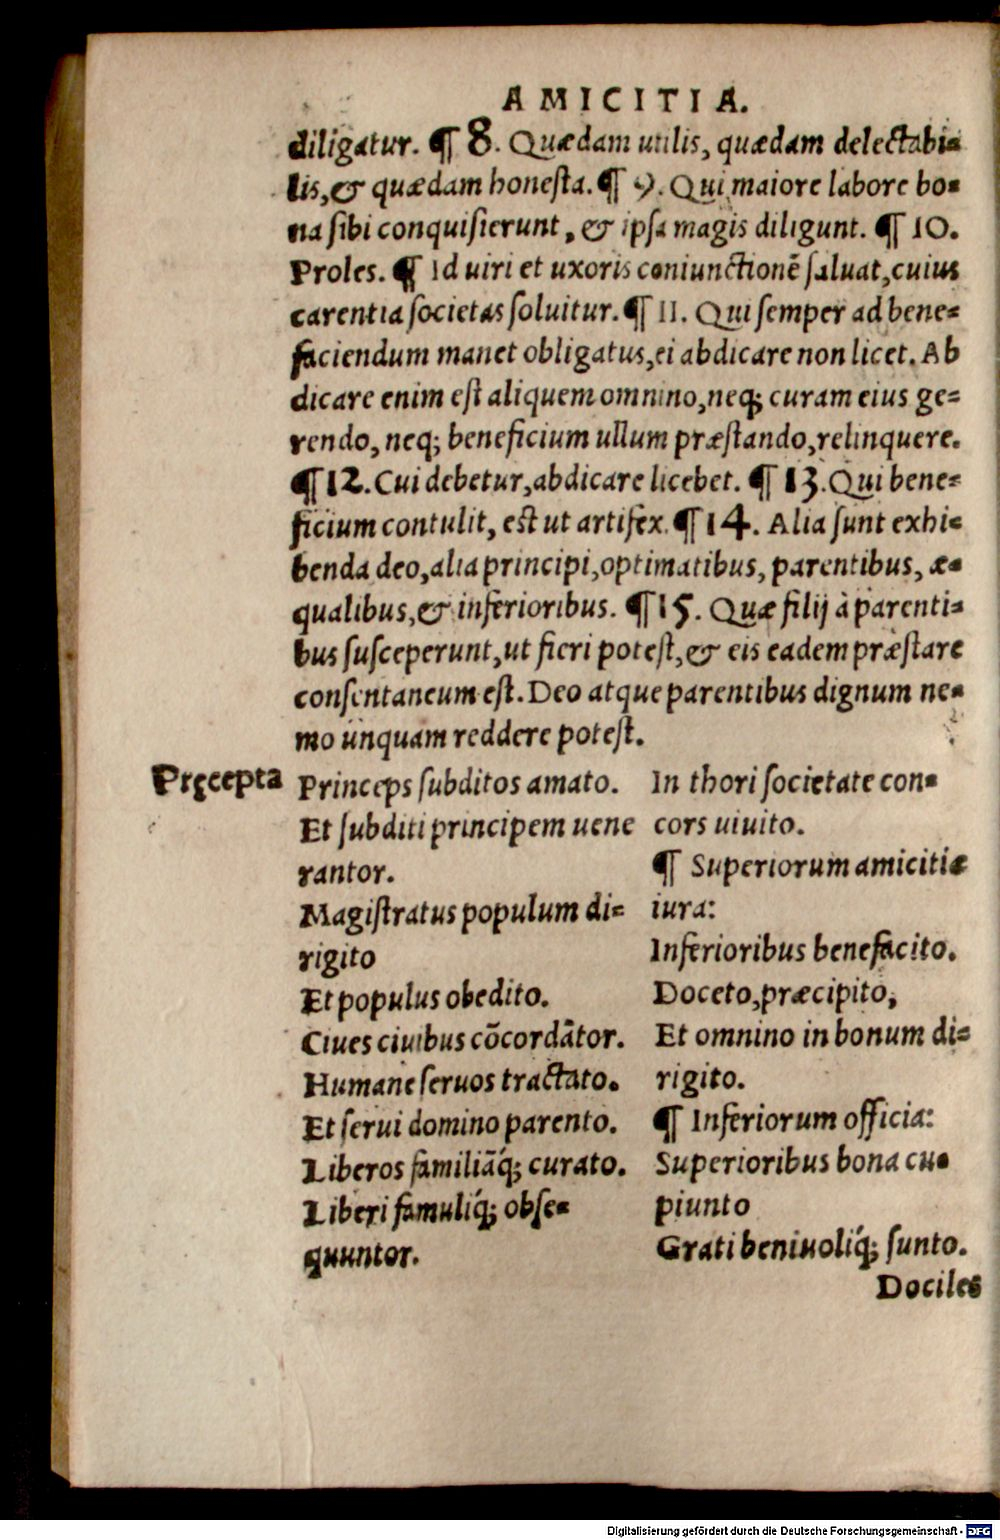 AMICITIA.
diligatur. ¶ 8. Quædam utilis, quædam delectabi=
lis, & quædam honesta. ¶ 9. Qui maiore labore bo=
na sibi conquisierunt, & ipsa magis diligunt. ¶ 10.
Proles. ¶ Id uiri et uxoris coniunctionē saluat, cuius
carentia societas soluitur. ¶ 11. Qui semper ad bene=
faciendum manet obligatus, ei abdicare non licet. Ab
dicare enim est aliquem omnino, neq; curam eius ge=
rendo, neq; beneficium ullum præstando, relinquere.
¶ 12. Cui debetur, abdicare licebet. ¶ 13. Qui bene=
ficium contulit, est ut artifex. ¶ 14. Alia sunt exhi=
benda deo, alia principi, optimatibus, parentibus, æ=
qualibus, & inferioribus. ¶ 15. Quæ filij à parenti=
bus susceperunt, ut fieri potest, & eis eadem præstare
consentaneum est. Deo atque parentibus dignum ne=
mo unquam reddere potest.
Pręcepta
Princeps subditos amato.
Et subditi principem uene
rantor.
Magistratus populum di=
rigito
Et populus obedito.
Ciues ciuibus cōcordātor.
Humane seruos tractato.
Et serui domino parento.
Liberos familiāq́; curato.
Liberi famuliq́; obse=
quuntor.
In thori societate con=
cors uiuito.
¶ Superiorum amicitiæ
iura:
Inferioribus benefacito.
Doceto, præcipito,
Et omnino in bonum di=
rigito.
¶ Inferiorum officia:
Superioribus bona cu=
piunto
Grati beniuoliq́; sunto.
Dociles
Digitalisierung gefördert durch die Deutsche Forschungsgemeinschaft - DFG